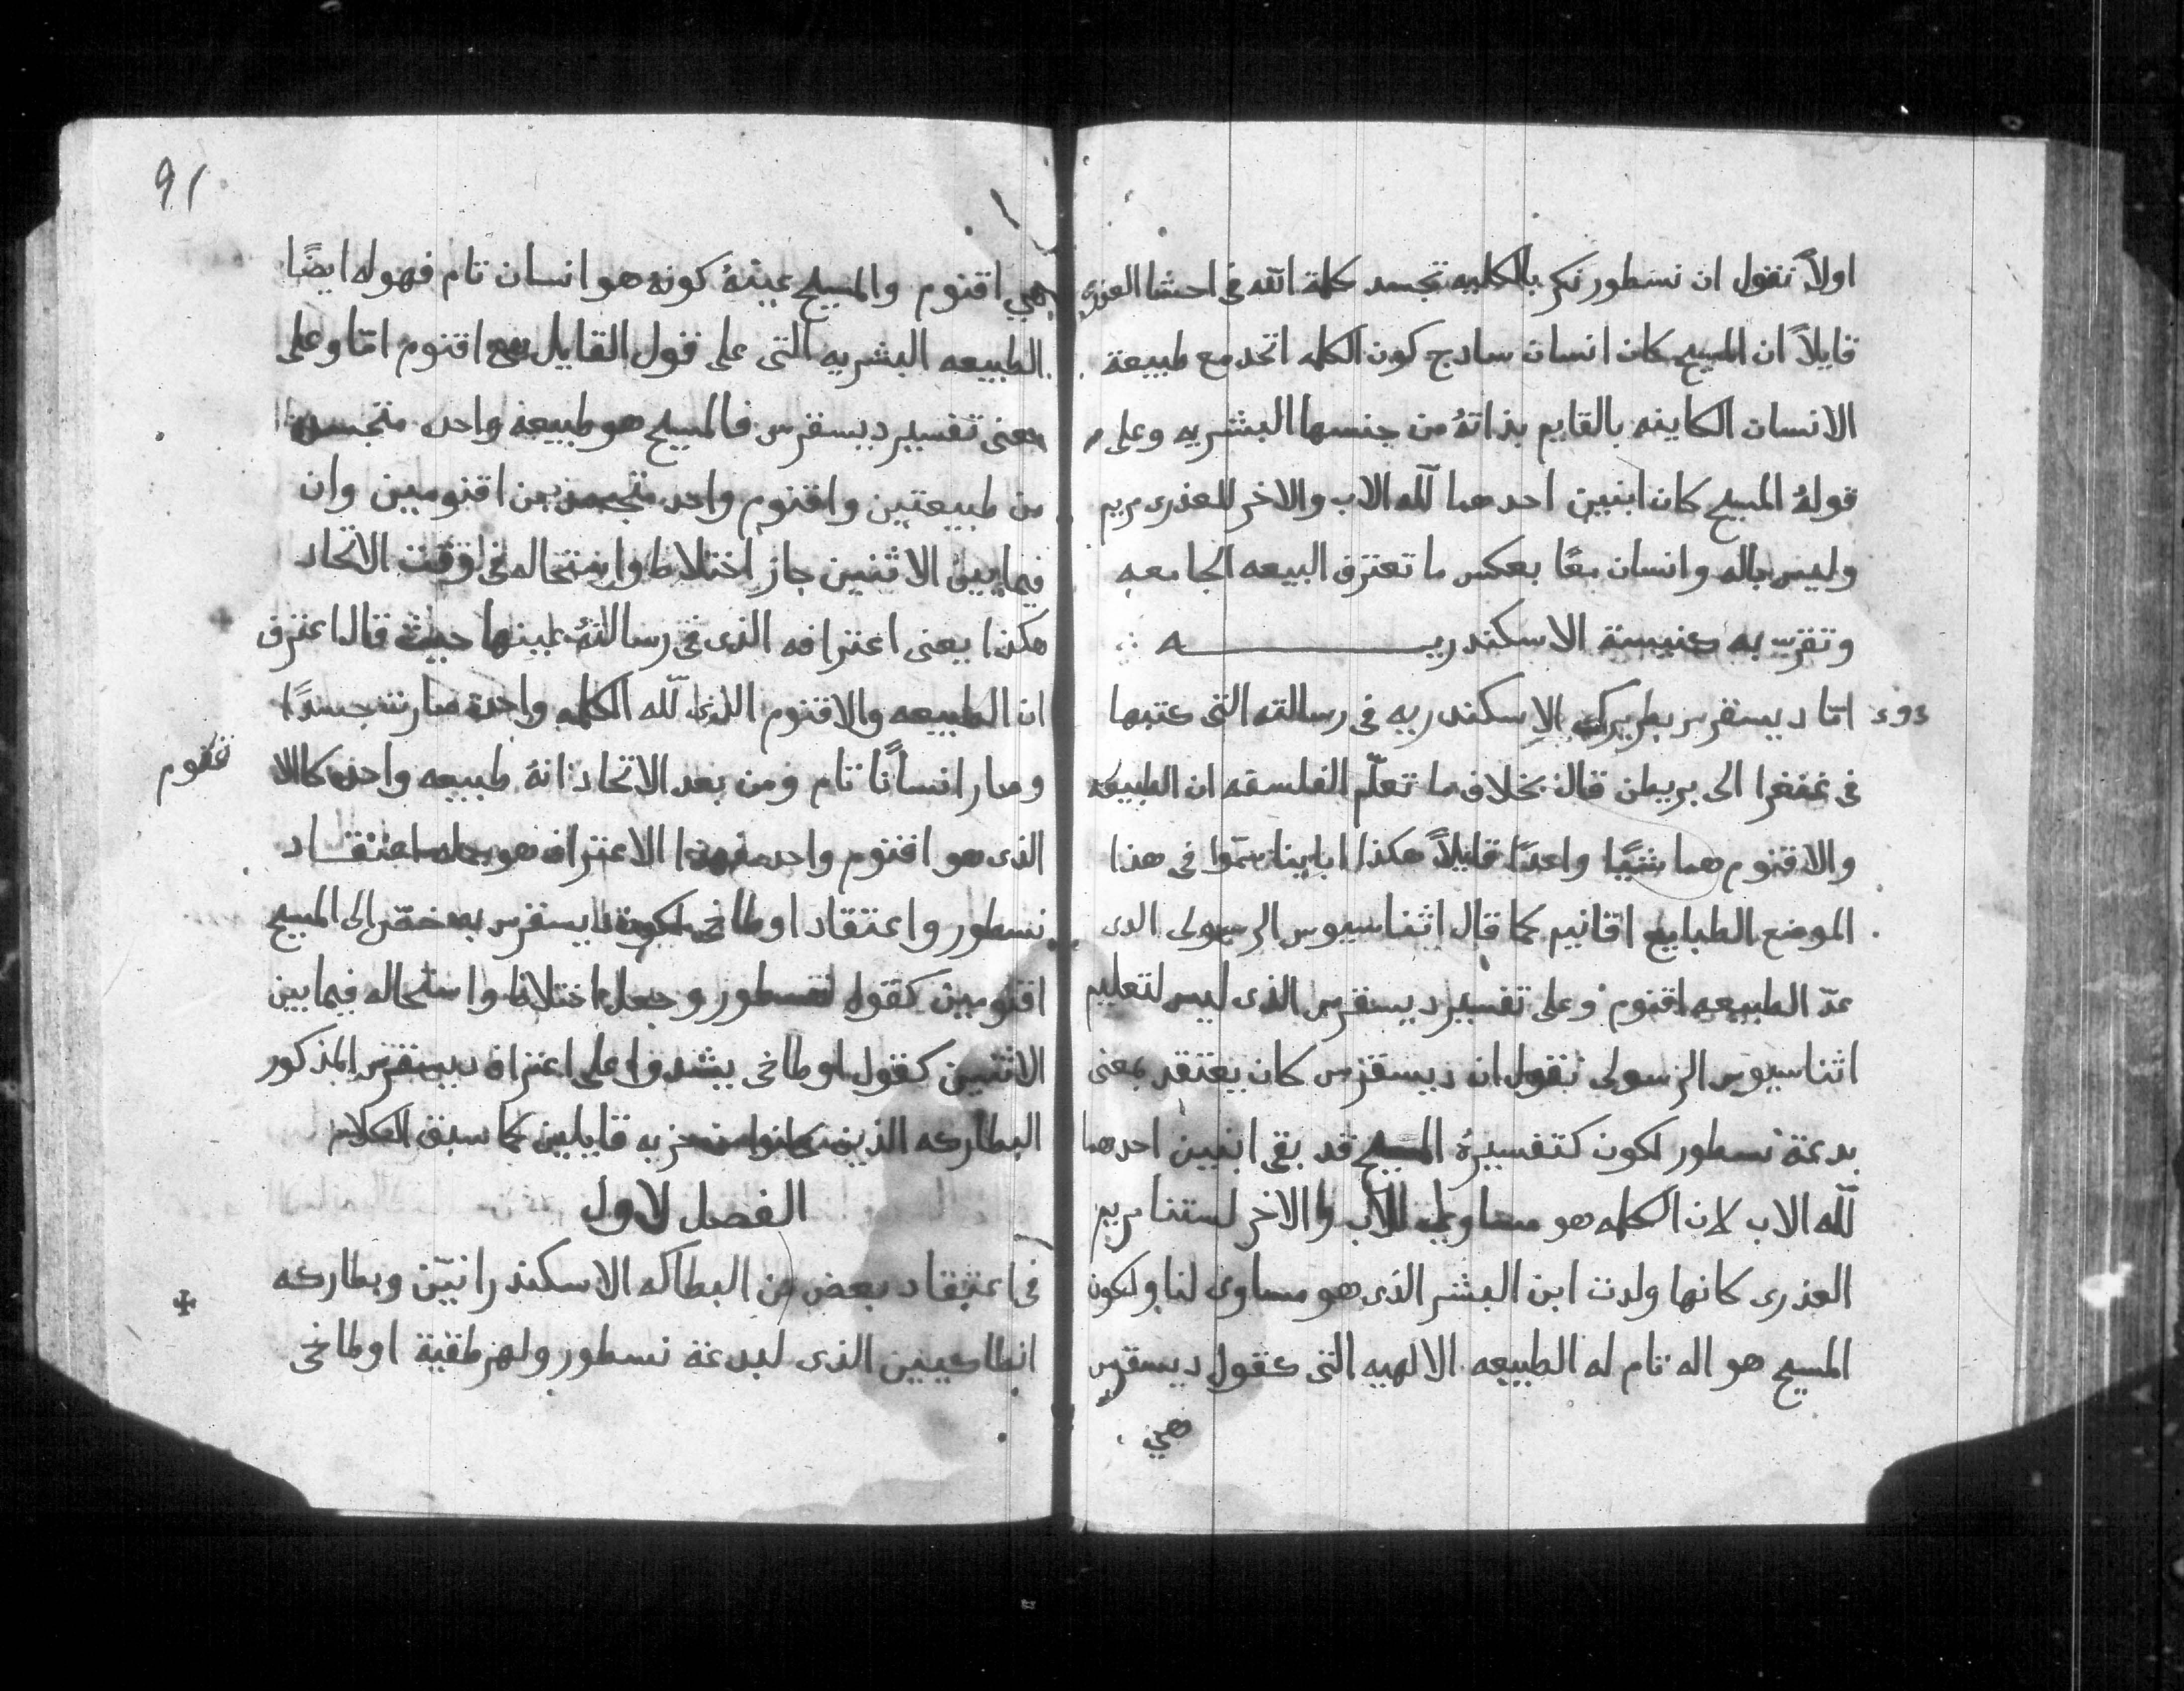 اولاً نقول ان نسطور نكر بالكليه تجسد كلمة الله فى احشا العذرى
قايلاً ان المسيح كان انسان سادج كون الكلمه اتحد مع طبيعة
الانسان الكاينه بالقايم بذاتهُ من جنسها البشريه وعلى
قولهُ المسيح كان ابنين احدهما لله الاب والاخر للعذرى مريم
وليس باله وانسان معًا بعكس ما تعترف البيعه الجامعه
وتقرّ به كنيسة الاسكندريه
امّا ديسقرس بطريرك الاسكندريه فى رسالته التى كتبها
فى غنغرا الى بريطن قال بخلاف ما تعلّم الفلسفه ان الطبيعه
والاقنوم هما شيًا واحدًا قايلاً هكذا اباينا سمّوا فى هذا
الموضع الطبايع اقانيم كما قال اثناسيوس الرسولى الدى
عدّ الطبيعه اقنوم وعلى تفسير ديسقرس الذى ليس لتعليم
اثناسيوس الرسولى نقول ان ديسقرس كان يعتقد بمعنى
بدعة نسطور لكون كتفسيرهُ المسيح قد بقى ابنين احدهما
لله الاب لان الكلمه هو مساوى للاب والاخر لستنا مريم
العذرى كانها ولدت ابن البشر الذى هو مساوى لنا ولكون
المسيح هو اله تام له الطبيعه الالهيه التى كقول ديسقرس
هي
91
هي اقنوم والمسيح عينهُ كونه هو انسان تام فهوله ايضًا
الطبيعه البشريه التى على قول القايل هى اقنوم امّا وعلى
معنى تفسير ديسقرس فالمسيح هو طبيعه واحده متجسده
من طبيعتين واقنوم واحد من اقنومين وان
فيما بين الاثنين جاز اختلاط واستحاله فى وقت الاتحاد
هكذا يعنى اعترافه الذى فى رسالتهُ عينها حيث قال اعترف
ان الطبيعه والاقنوم الذى لله الكلمه واحده صارت جسدًا
وصار انسانًا تام ومن بعد الاتحاد انهُ طبيعه واحده كالا
الذى هو اقنوم واحد فهذا الاعتراف هو اعتقاد
نسطور واعتقاد اوطاخى لكون ديسقرس به حقّر الى المسيح
اقنومين كقول نسطور وجعل اختلاط واستحاله فيما بين
الاثنين كقول اوطاخى يشدوا على اعتراف ديسقرس المذكور
البطاركه الذين كانوا من حزبه قايلين كما سبق الكلام
الفصل لاول
فى اعتقاد بعض من البطاكه الاسكندرانيّن وبطاركه
انطاكيين الذى لبدعة نسطور ولهرطقية اوطاخى